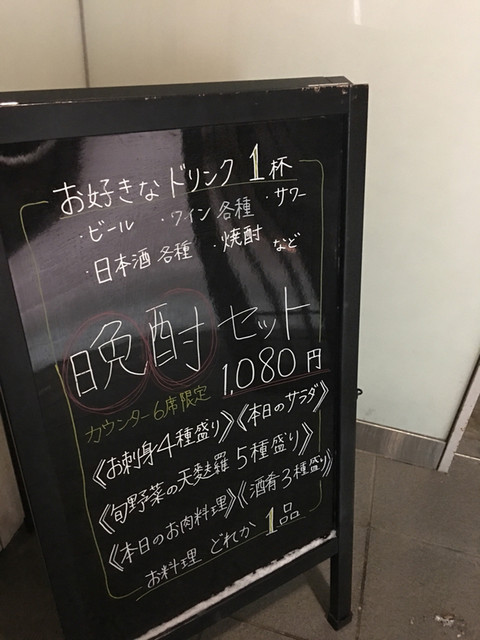 お好きなドリンク1杯
・ビール ・ワイン各種 ・サワー
・日本酒各種 ・焼酎 など
晩酌セット
カウンター6席限定 1,080円
《お刺身4種盛り》《本日のサラダ》
《旬野菜の天麩羅5種盛り》
《本日のお肉料理》《酒肴3種盛り》
お料理 どれか1品